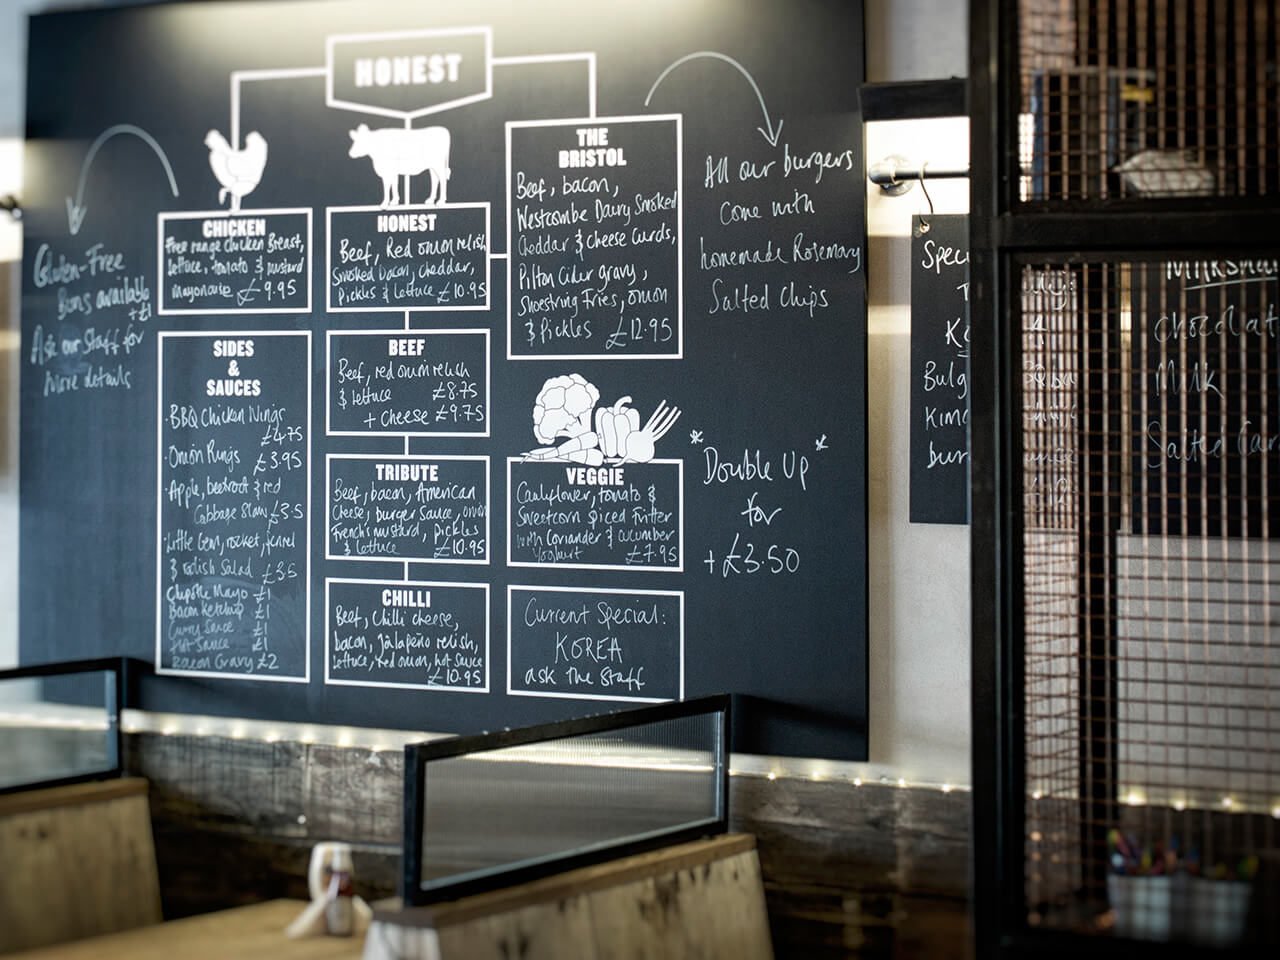 HONEST
Gluten-Free
Buns available
+£1
Ask our Staff for
more details
CHICKEN
Free range chicken Breast,
lettuce, tomato & mustard
Mayonaise £9.95
SIDES
&
SAUCES
·BBQ Chicken Wings
£4.75
·Onion Rings £3.95
·Apple, beetroot & red
Cabbage Slaw £3.5
·Little Gem, rocket, fennel
& radish Salad £3.5
Chipotle Mayo £1
Bacon Ketchup £1
Curry Sauce £1
Hot Sauce £1
Bacon Gravy £2
HONEST
Beef, Red onion relish
Smoked bacon, cheddar,
Pickles & lettuce £10.95
BEEF
Beef, red onion relish
& lettuce £8.75
+ cheese £9.75
TRIBUTE
Beef, bacon, American
Cheese, burger sauce, onion
French's mustard, pickles
& lettuce £10.95
CHILLI
Beef, chilli cheese,
bacon, Jalapeño relish,
lettuce, red onion, hot sauce
£10.95
THE
BRISTOL
Beef, bacon,
Westcombe Dairy Smoked
Cheddar & cheese curds,
Pilton Cider gravy,
Shoestring Fries, onion
& Pickles £12.95
VEGGIE
Cauliflower, tomato &
Sweetcorn Spiced Fritter
with Coriander & cucumber
Yoghurt £7.95
Current Special:
KOREA
ask the Staff
All our burgers
Come with
homemade Rosemary
Salted Chips
*Double Up*
for
+£3.50
Speci
Bulg
Kimc
bur
Milksha
Chocolat
Milk
Salted Car